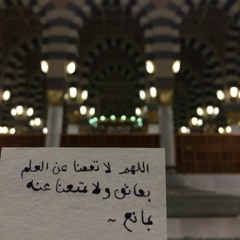 اللهم لا تعقنا عن العلم
بعائق ولا تمنعنا عنه
بمانع ~